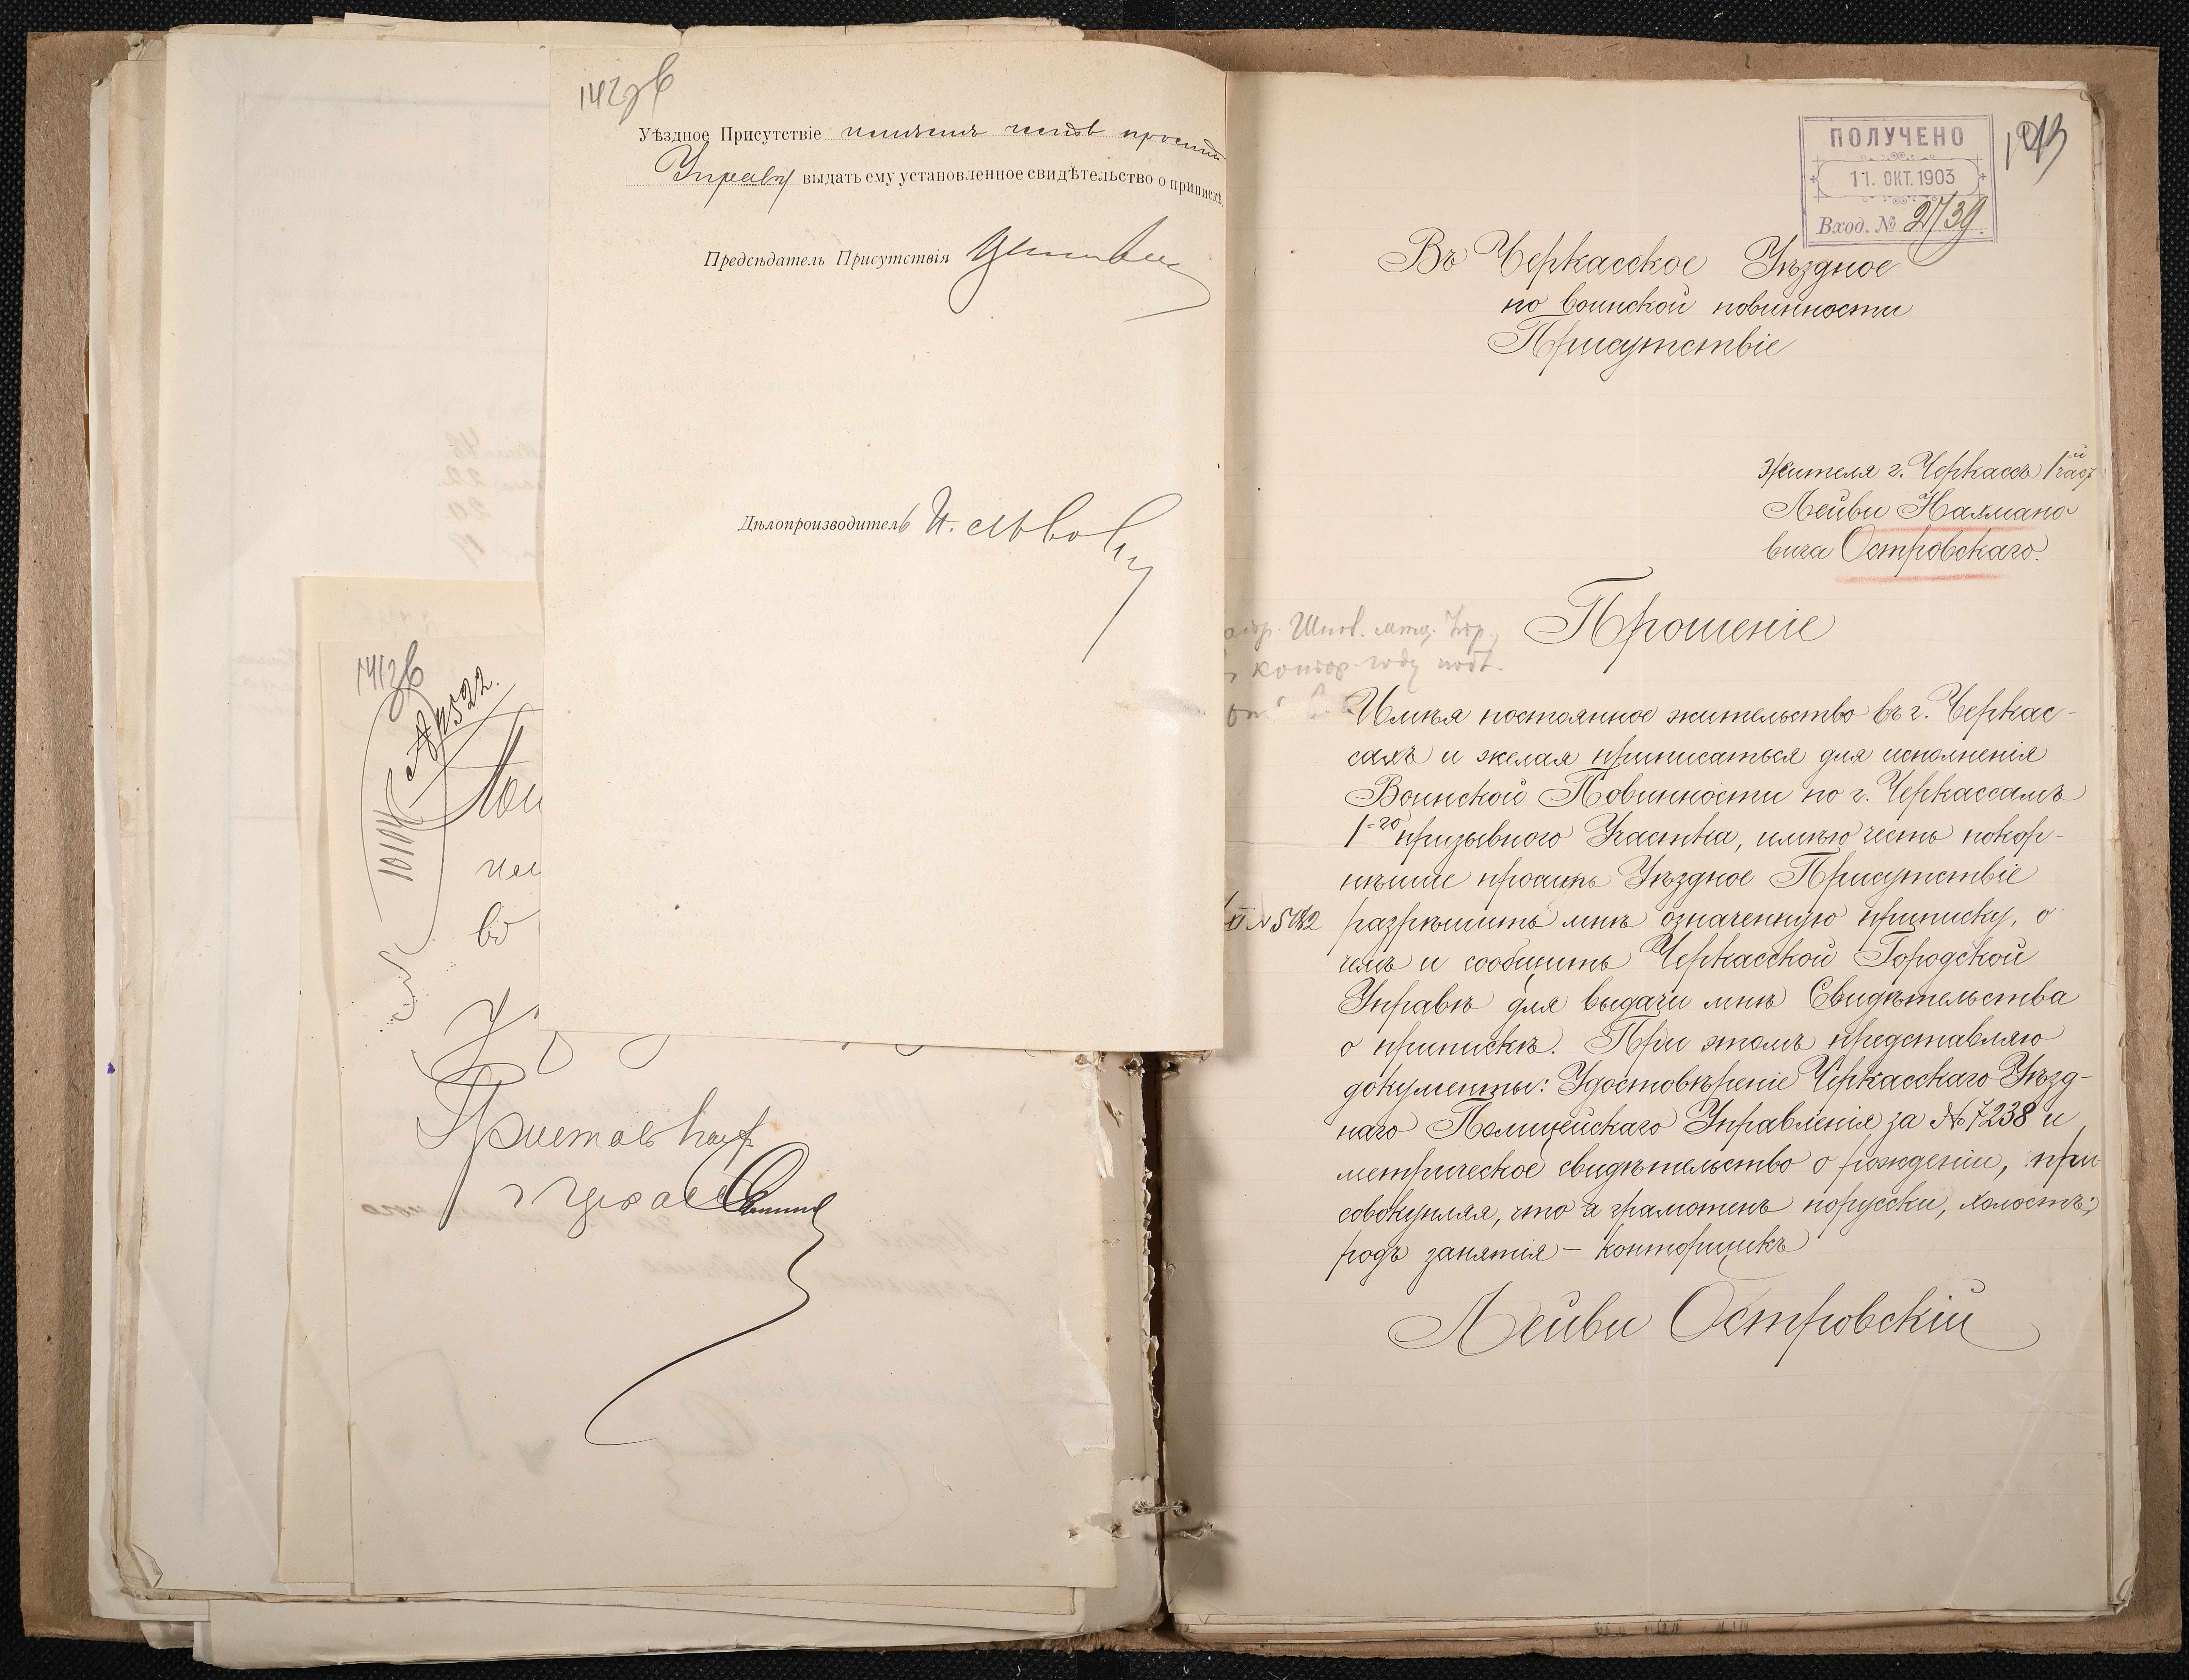 142 об
Уѣздное Присутствіе имѣетъ честь просить
Управу выдать ему установленное свидѣтельство о припискѣ.
Предсѣдатель Присутствія
Дѣлопроизводитель
141 об
№ 2522.
10104
во
Приставъ
ПОЛУЧЕНО
11. ОКТ. 1903
Вход. № 2739
143
Въ Черкасское Уѣздное
по воинской повинности
Присутствіе
Жителя г. Черкассъ 1й
Лейви Нахмано
вича Островскаго.
Прошеніе
Имѣя постоянное жительство въ г. Черкас-
сахъ и желая приписаться для исполненія
Воинской Повинности по г. Черкассамъ
1=го призывного Участка, имѣю честь покор-
нѣйше просить Уѣздное Присутствіе
разрѣшить мнѣ означенную приписку, о
чемъ и сообщить Черкасской Городской
Управѣ для выдачи мнѣ Свидѣтельства
о припискѣ. При этомъ представляю
документы: Удостовѣреніе Черкасскаго Уѣзд-
наго Полицейскаго Управленія за № 7238 и
метрическое свидѣтельство о рожденіи, при
совокупляя, что я грамотенъ порусски, холостъ;
родъ занятія – конторщикъ
Лейви Островскій